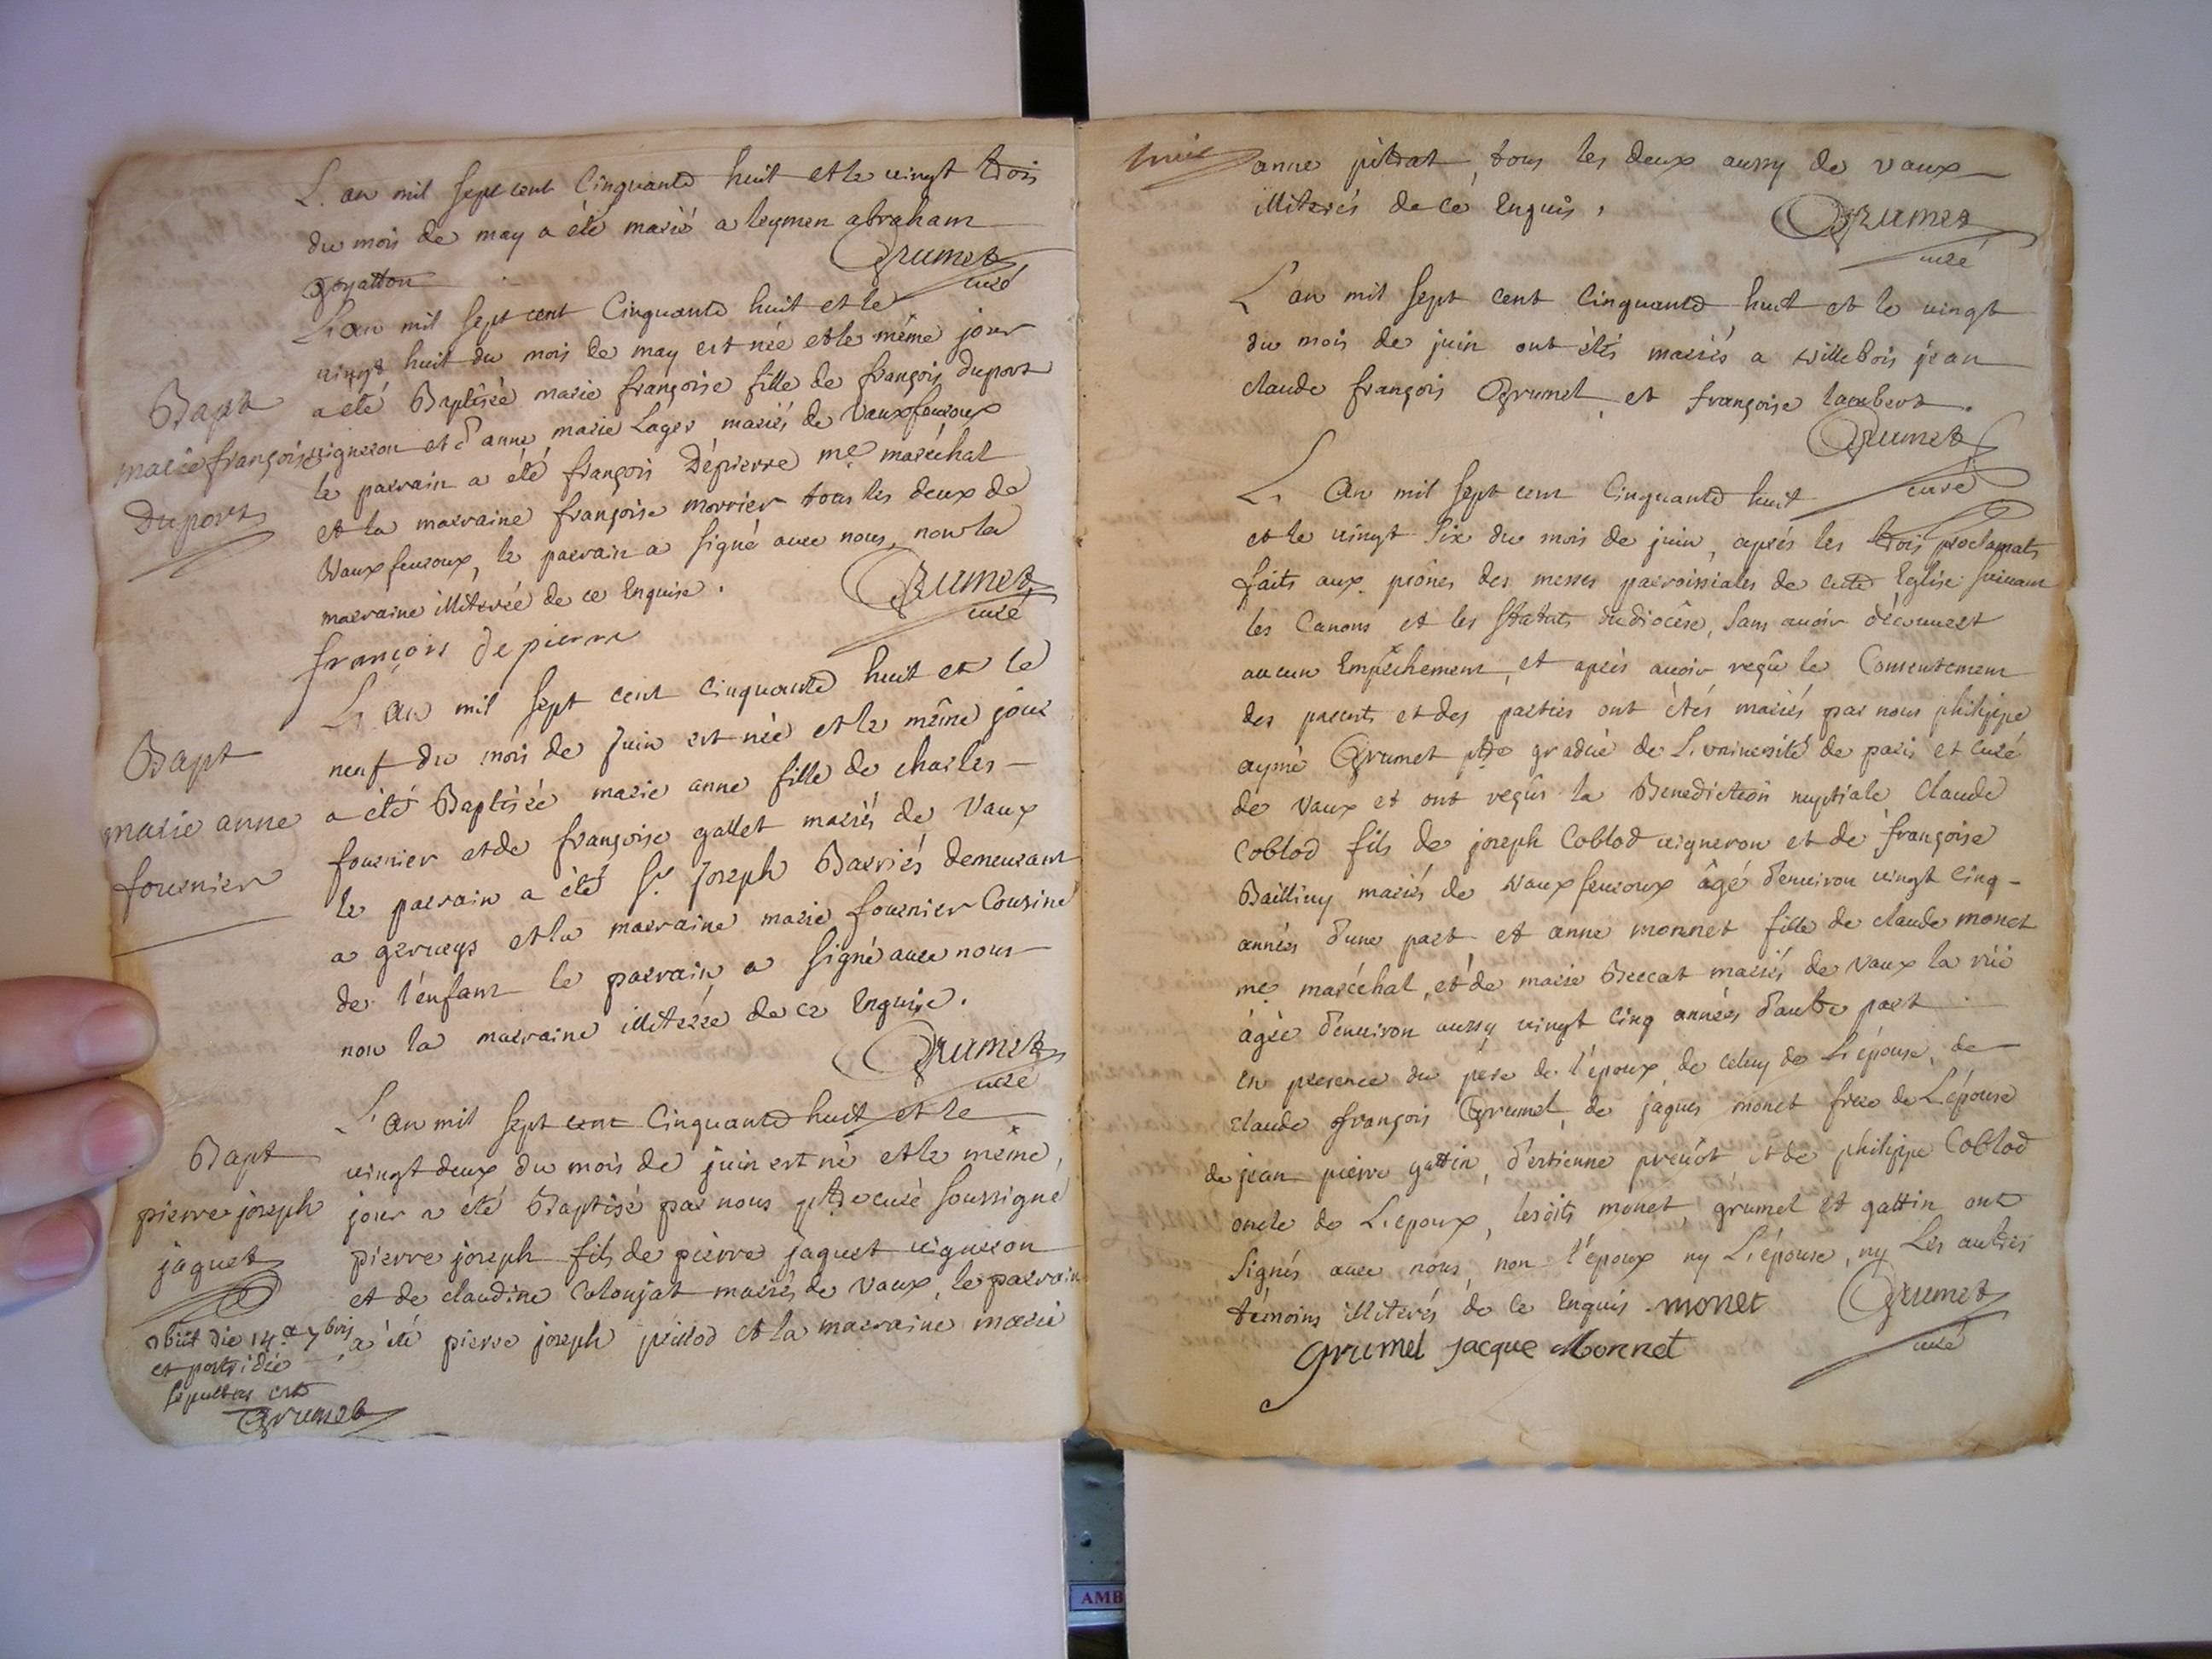 L'an mil sept cent Cinquante huit et le vingt trois
du mois de may a été marié a leymen abraham
goyatton
Grumet
curé
L'an mil sept cent Cinquante huit et le
vingt huit du mois de may est née et le même jour
a eté Baptisée marie françoise fille de françois duport
vigneron et d'anne marie Lager mariés de Vauxfeuroux
le parrain a été françois Dépierre me maréchal
et la marraine françoise morrier tous les deux de
Vauxfeuroux, le parrain a signé avec nous, non la
marraine illiterée de ce Enquise.
Grumet
curé
françois depierre
Bapt
marie françoise
Duport
L'an mil sept cent Cinquante huit et le
neuf du mois de Juin est née et le même jour
a été Baptisée marie anne fille de charles
fournier et de françoise gallet mariés de Vaux
le parrain a été Sr Joseph Barriés demeurant
a gervays et la marraine marie fournier Cousine
de l'enfant le parrain a signé avec nous
non la marraine illiterée de ce Enquise.
Grumet
curé
Bapt
marie anne
fournier
L'an mil sept cent Cinquante huit et le
vingt deux du mois de juin est né et le même
jour a été Baptisé par nous ptre curé soussigné
pierre joseph fils de pierre jaquet vigneron
et de claudine Colonjat mariés de Vaux, le parrain
a été pierre joseph et la marraine marie
Bapt
pierre joseph
jaquet
obiit die 14a 7bris
et postridie
sepultus est
Grumet
anne pitrat, tous les deux aussy de vaux
illiterés de ce Enquis.
Grumet
curé
L'an mil sept cent Cinquante huit et le vingt
du mois de juin ont étés mariés a Villebois jean
claude françois Grumel et françoise lambert.
Grumet
curé
L'An mil sept cent Cinquante huit
et le vingt six du mois de juin, aprés les trois proclamats
faits aux prônes des messes parroissiales de cette Eglise suivant
les Canons et les Statuts du diocèse, sans avoir découvert
aucun Empêchement, et aprés avoir reçû le Consentement
des parents et des parties ont étés mariés par nous philippe
aymé Grumet ptre gradué de L'université de paris et curé
de Vaux et ont reçûs la Benediction nuptiale Claude
Coblod fils de joseph Coblod vigneron et de françoise
Bailliny mariés de Vauxfeuroux âgé d'environ vingt Cinq
années d'une part et anne monnet fille de claude monet
me maréchal, et de marie Beccat mariés de Vaux la rüe
âgée d'environ aussy vingt Cinq années d'autre part
En presence du pere de l'époux, de celuy de L'épouse, de
claude françois Grumel, de jaques monet frere de L'épouse
de jean pierre gattin, d'estienne prevôt et de philippe Coblod
oncle de L'epoux, lesdits monet, grumel et gattin ont
signés avec nous, non l'époux ny L'épouse, ny Les autres
témoins illiterés de ce Enquis. monet
Grumet
curé
grumel jacque Monnet
AMB